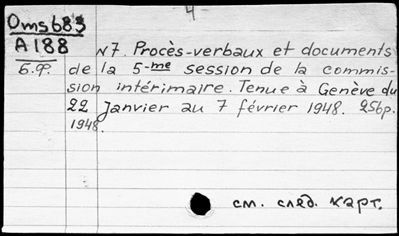 4-
Oms683
A188
N7. Procès-verbaux et documents
Б.Ф. de la 5-me session de la commis-
sion intérimaire. Tenue à Genève du
22 Janvier au 7 février 1948. 256p.
1948.
см. след. карт.